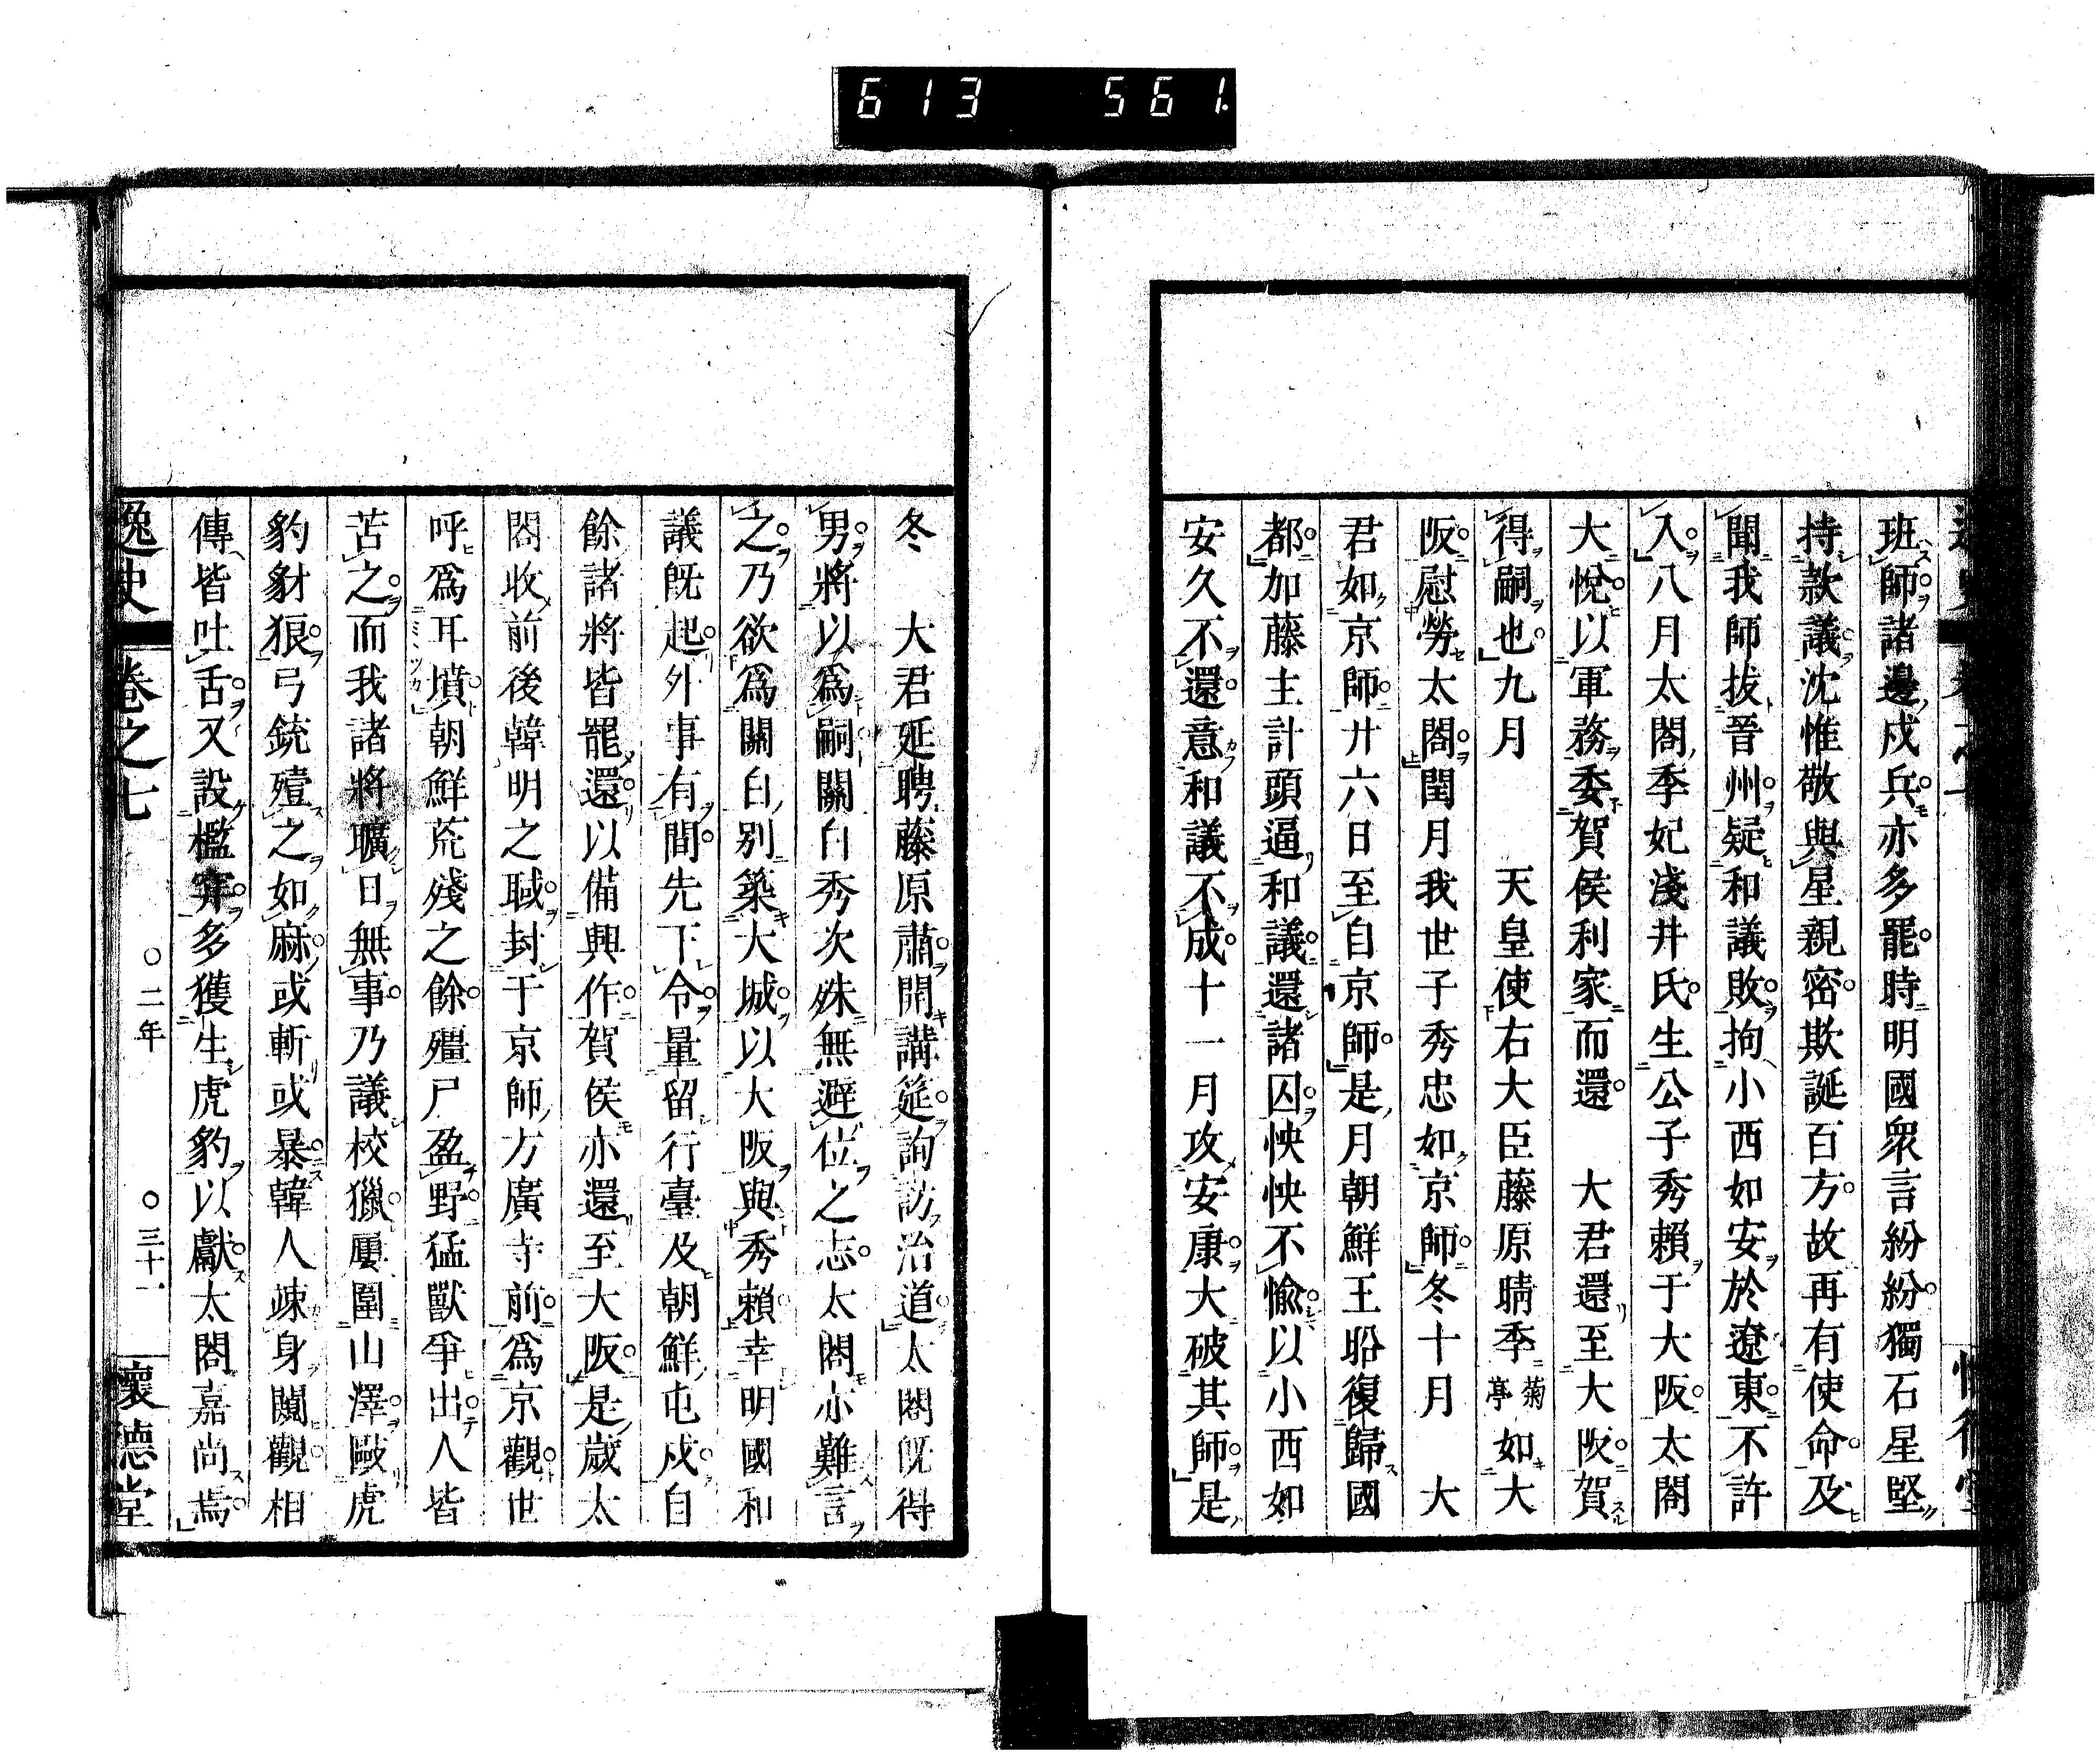 613 561.
班師諸邊戍兵亦多罷時明國衆言紛紛獨石星堅
持款議沈惟敬與星親密欺誕百方故再有使命及
聞我師拔晉州疑和議敗拘小西如安於遼東不許
入八月太閤季妃淺井氏生公子秀賴于大阪太閤
大悅以軍務委賀侯利家而還 大君還至大阪賀
得嗣也九月 天皇使右大臣藤原晴季菊亭如大
阪慰勞太閤閏月我世子秀忠如京師冬十月 大
君如京師廿六日至自京師是月朝鮮王昖復歸國
都加藤主計頭逼和議還諸囚怏怏不愉以小西如
安久不還意和議不成十一月攻安康大破其師是
冬 大君延聘藤原肅開講筵詢訪治道太閤既得
男將以爲嗣關白秀次殊無避位之志太閤亦難言
之乃欲爲關白別築大城以大阪與秀賴幸明國和
議既起外事有間先下令量留行臺及朝鮮屯戍自
餘諸將皆罷還以備興作賀侯亦還至大阪是歲太
閤收前後韓明之聝封于京師方廣寺前爲京觀世
呼爲耳墳朝鮮荒殘之餘殭尸盈野猛獸爭出人皆
苦之而我諸將曠日無事乃議校獵屢圍山澤毆虎
豹豺狼弓銃殪之如麻或斬或暴韓人竦身闚觀相
傳皆吐舌又設檻穽多獲生虎豹以獻太閤嘉尚焉
逸史 卷之七 〇二年 〇三十一 懷德堂